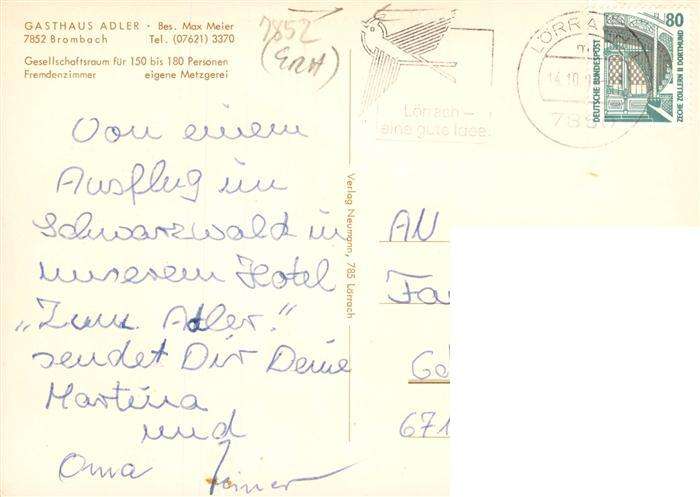 GASTHAUS ADLER · Bes. Max Meier
7852 Brombach Tel. (07621) 3370
Gesellschaftsraum für 150 bis 180 Personen
Fremdenzimmer eigene Metzgerei
7852
Lörrach –
eine gute Idee.
LÖRRA
14.10.
DEUTSCHE BUNDESPOST
80
ZECHE ZOLLERN II DORTMUND
Von einem
Ausflug im
Schwarzwald in
unserem Hotel
„Zum Adler."
sendet Dir Deine
Martina
und
Oma
Verlag Neumann, 785 Lörrach
AN
Fa
Ge
671